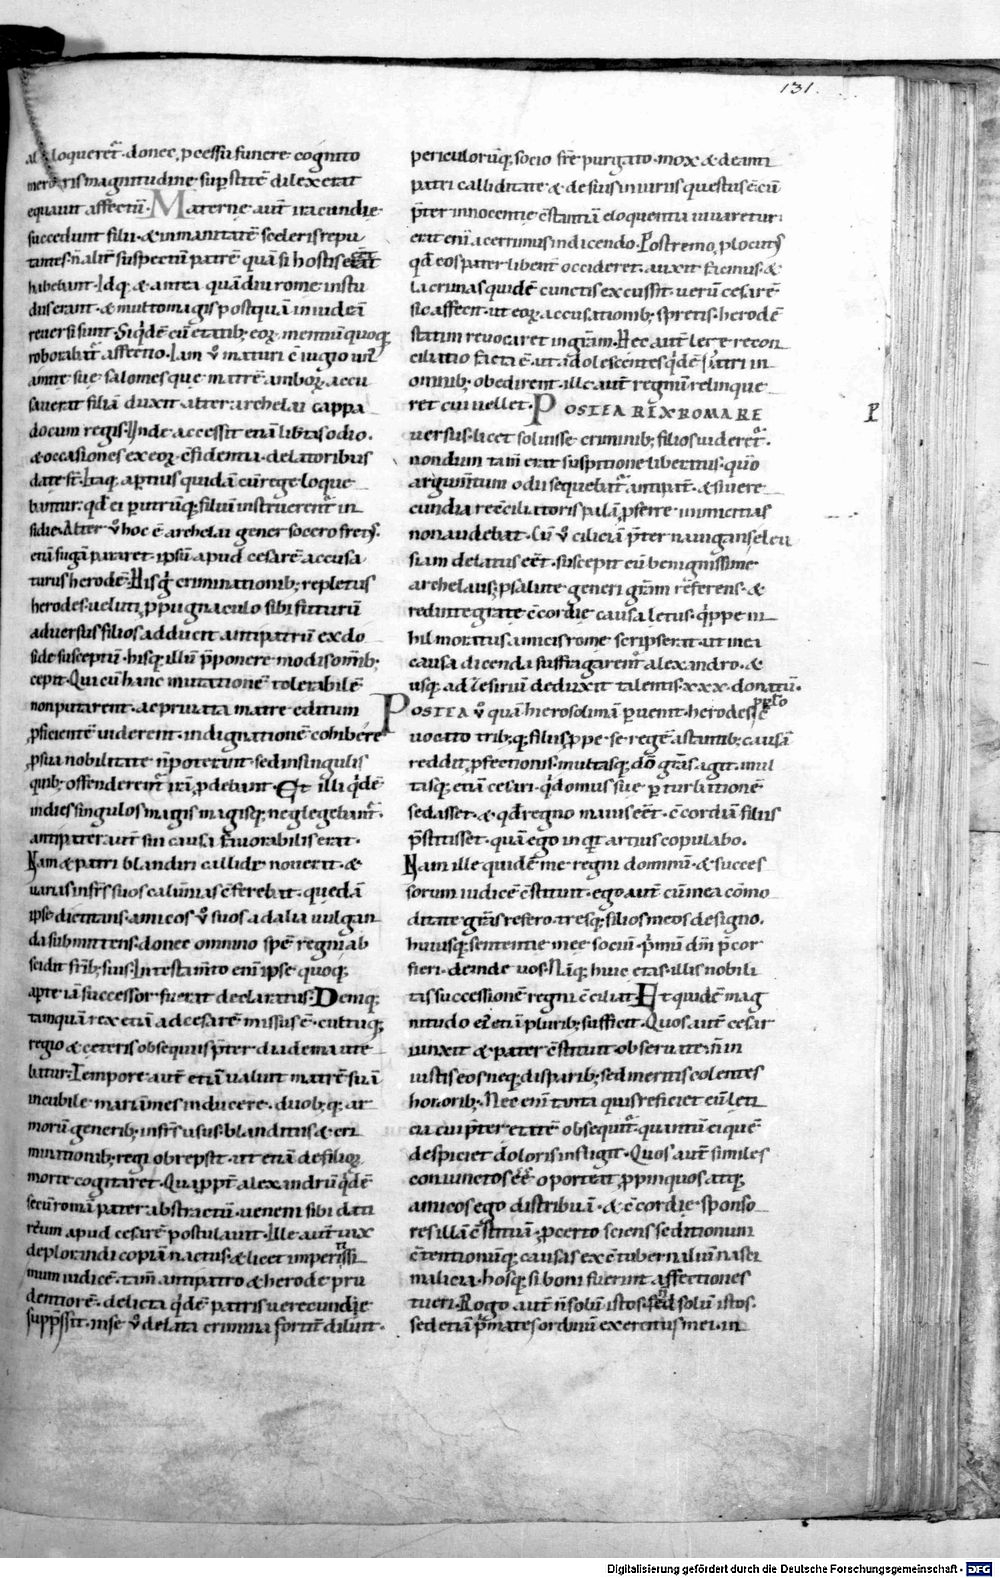 131.
loqueret͛. donec, ꝓcessu funere cognito
meroris magnitudine supstitē dilexerat
equauit affectū. Materne aut̄ iracundie
succedunt filii. & inmanitatē sceleris repu
tantes. n̄ alit̄ suspectū patrē quā si hostis erat
habebant. Idq; & antea quādiu rome instu
duerant. & multo magis postquā in iudeā
reuersi sunt. Siqdē cū etatib; eoꝝ mentiū quoq;
roborabat͛ affectio. Iam ṽ maturi
amite sue salomes que matrē amboꝝ accu
sauerat filiā duxit. alter archelai cappa
docum regis. Inde accessit etiā libertas odio.
& occasiones ex eoꝝ c̄fidentia. delatoribus
date st̄. Itaq; aptius quidā cū rege loque
bantur. qd̄ ei p utrūq; filiū instruerent͛ in
sidie. Alter ṽ hoc ē archelai gener socero fretꝰ.
etiā fugā pararet. ipsū apud cesarē accusa
turus herodē. Hisq; criminationib; repletus
herodes. ueluti, ꝓpugnaculo sibi futurū
aduersus filios adducit antipatrū ex do
side susceptū. hisq; illū p̄ponere modis om̄ib;
cepit. Qui cū hanc mutationē tolerabilē
non putarent. ac priuata matre editum
ꝓficientē uiderent. indignationē cohibere
ꝓ sua nobilitate n̄ poterant. sed in singulis
quib; offenderent͛ irā, ꝓdebant. Et illi qdē
indies singulos magis magisq; neglegebant͛.
antipater aut̄ sin causa fauorabilis erat.
Nam & patri blandiri callide nouerat. &
uarias inf̄rs suos calūnias c̄ferebat. quedā
ipse dictitans. amicos ṽ suos ad alia uulgan
da submittens. donec omnino spē regni ab
scidit frīb; suis. In testam̄to enī ipse quoq;
apte iā successor fuerat declaratus. Deniq;
tanquā rex etiā ad cesarē missus ē. cultuq;
regio & ceteris obsequiis p̄ter diadema ute
batur. Tempore aut̄ etiā ualuit matrē suā
in cubile mariāmes inducere. duob; q; ar
morū generib; inf̄rs usus. blanditiis & cri
minationib; regi obrepsit. ut etiā de filioꝝ
morte cogitaret. Quappt̄ alexandrū qdē
secū romā pater abstractū. ueneni sibi dati
reum apud cesarē postulauit. Ille aut̄ uix
deplorandi copiā nactus. & licet imperitissi
mum iudicē. tam̄ antipatro & herode pru
dentiorē. delicta qdē patris uerecundie
supp̄ssit. in se ṽ delata crimina fortit̄ diluit.
periculorūq; socio fr̄e purgato. mox & de anti
patri calliditate & de suis iniuriis questus ē. cū
p̄ter innocentie c̄stantiā eloquentia iuuaretur.
erat enī acerrimus in dicendo. Postremo, ꝓlocutꝰ
qd̄ eos pater libent̄ occideret. auxit facinus. &
lacrimas quidē cunctis excussit. uerū cesarē
sic affecit. ut eoꝝ accusationib; spretis. herodē
statim reuocaret in gr̄am. Hec aut̄ lege recon
ciliatio facta ē. ut. adolescentes qdē patri in
omnib; obedirent. ille aut̄ regnū relinque
ret cui uellet. POSTEA REX ROMA RE
P
uersus. licet soluisse criminib; filios uideret͛.
nondum tam̄ erat suspitione liberatus. quō
argum̄tum odii sequebat͛ antipat̄. & si uere
cundia rec̄ciliatoris palā, ꝓferre inimicitias
non audebat. Cū ṽ ciliciā p̄ter nauigans eleu
siam delatus eēt. suscepit eū benignissime
archelaus, ꝓ salute generi gr̄am referens. &
redintegrate c̄cordie causa letus. qippe ni
hil moratus. amicis rome scripserat. ut in ea
causa dicenda suffragarent͛ alexandro. &
usq; ad zefiriū deduxit. talentis. xxx. donatū.
POSTEA ṽ quā hierosolimā puenit. herodes
uocato trib; q; filiis, ꝓpe se regē astantib; causā
reddit, ꝓfectionis. multasq; dō gr̄as agit. mul
tasq; etiā cesari. qd domus sue pturbationē
sedasset. & qd̄ regno maius eēt. c̄cordiā filiis
p̄stitisset. quā ego inqt artius copulabo.
Nam ille quidē me regni dominū. & succes
sorum iudicē c̄stituit. ego aut̄ cū mea cōmo
ditate gr̄as refero. tresq; filios meos designo.
huiusq; sententie mee sociū. p̄mū dm̄ p̄cor
fieri. deinde uos. Nāq; huic etas. illis nobili
tas successionē regni c̄ciliat. Et quidē mag
nitudo ei etiā plurib; sufficit. Quos aut̄ cesar
iunxit & pater c̄stituit. obseruate. n̄ in
iustis eos neq; disparib; sed meritis colentes
honorib;. Nec enī tanta quis reficiet eū leti
cia cui p̄ter etatē obsequit͛. quantū ei quē
despiciet doloris instigat. Quos aut̄ similes
coniunctos eē oporteat, ꝓpinquos atq;
amicos ego distribuā. & c̄cordie sponso
res illā c̄stituā. ꝓ certo sciens seditionum
c̄tentionūq; causas ex c̄tuberniū nasci
malicia. hosq; si boni fuerint affectiones
tueri. Rogo aut̄ n̄ solū istos. sed solū istos.
sed etiā p̄mates ordinū exercitus mei. in
Digitalisierung gefördert durch die Deutsche Forschungsgemeinschaft - DFG